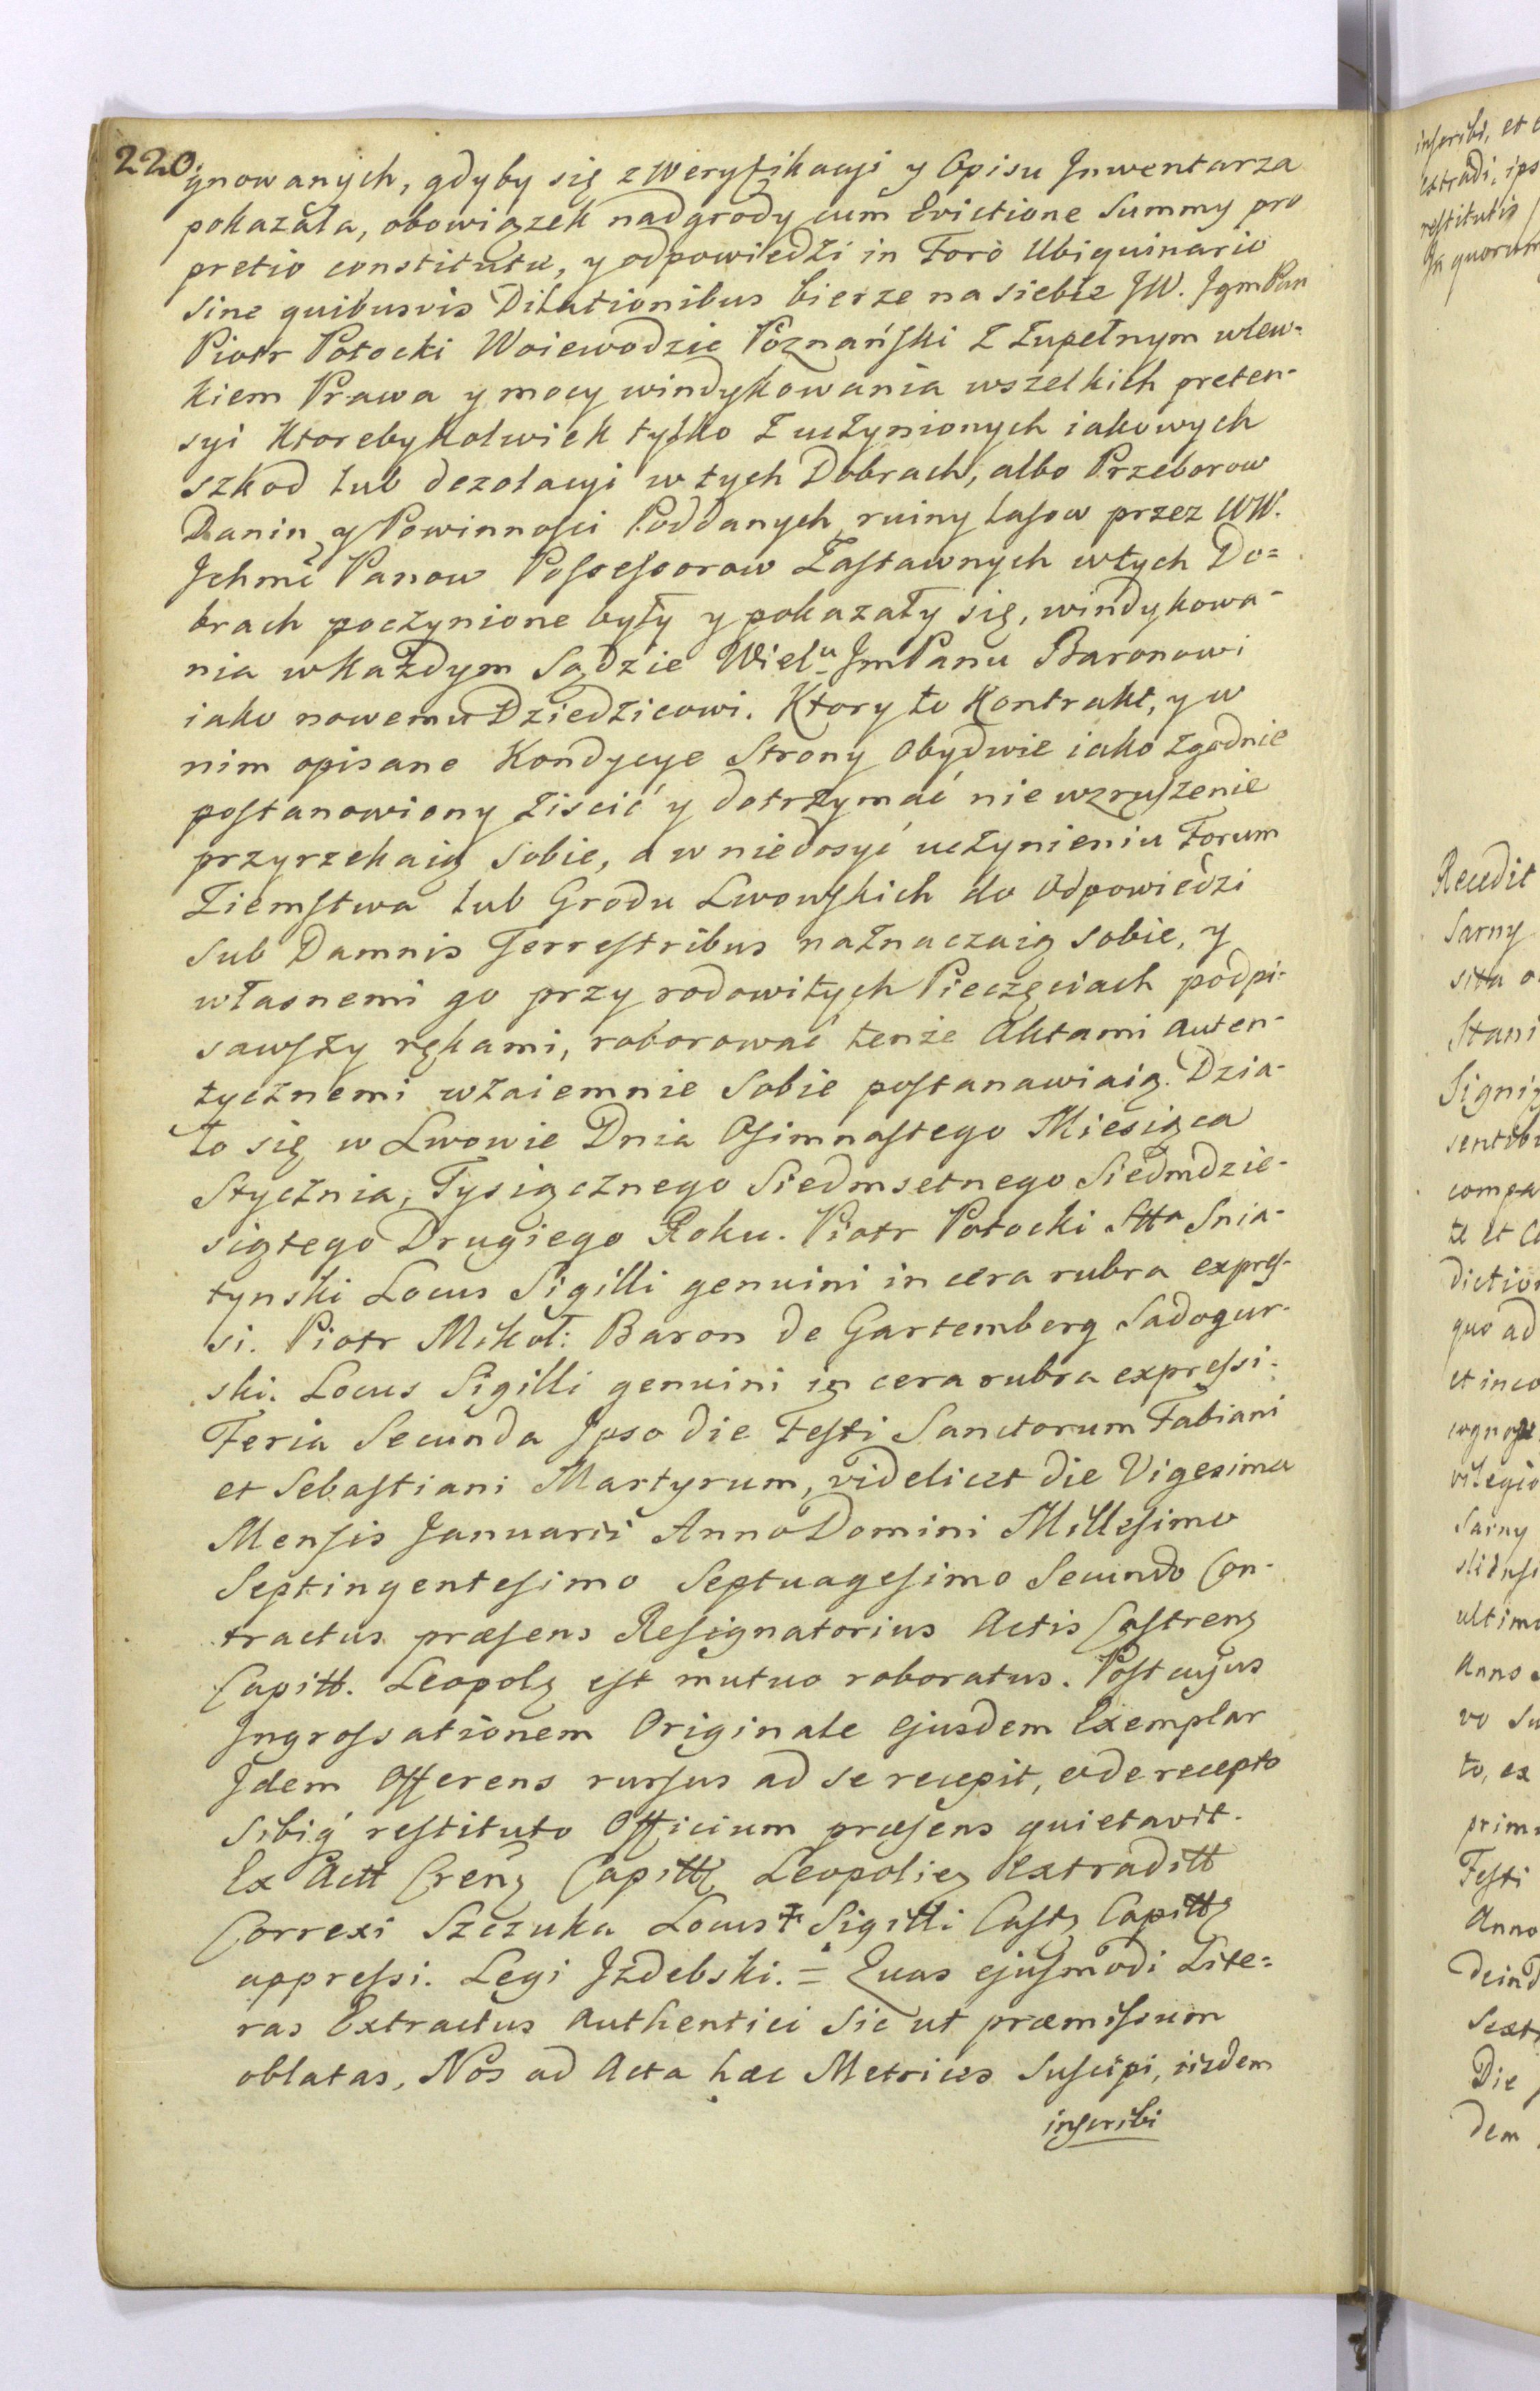 220.
gnowanych, gdyby się z Weryfikacyi y Opisu Inwentarza
pokazała, obowiązek nadgrody cum Evictione Summy pro
pretio constitutæ, y odpowiedzi in Foro Ubiquinario
sine quibusvis Dilationibus bierze na siebie JW. JgmPan
Piotr Potocki Woiewodzic Poznański z zupełnym wlew-
kiem Prawa y mocy windykowania wszelkich preten-
syi ktorebykolwiek tylko z uczynionych iakowych
szkod lub dezolacyi w tych Dobrach, albo Przeborow
Danin y Powinności Poddanych, ruiny lasow przez WW.
Ichmć Panow Possessorow Zastawnych w tych Do=
brach poczynione były y pokazały się, windykowa-
nia w każdym Sądzie Wielu JmPanu Baronowi
iako nowemu Dziedzicowi. Ktory to Kontrakt, y w
nim opisane Kondycye Strony obydwie iako zgodnie
postanowiony ziscić y dotrzymać nie wzruszenie
przyrzekaią sobie, a w niedosyć uczynieniu Forum
Ziemstwa lub Grodu Lwowskich do odpowiedzi
sub Damnis Terrestribus naznaczaią sobie, y
własnemi go przy rodowitych Pieczęciach podpi-
sawszy rękami, roborować tenże Aktami auten-
tycznemi wzaiemnie sobie postanawiaią. Dzia-
ło się w Lwowie Dnia Osimnastego Miesiąca
Stycznia, Tysiącznego Siedmsetnego Siedmdzie-
siątego Drugiego Roku. Piotr Potocki Stta Snia-
tynski Locus Sigilli genuini in cera rubra expres-
si. Piotr Mikoł: Baron de Gartemberg Sadogur-
ski. Locus Sigilli genuini in cera rubra expressi.
Feria Secunda Ipso die Festi Sanctorum Fabiani
et Sebastiani Martyrum, videlicet die Vigesima
Mensis Januarii Anno Domini Millesimo
Septingentesimo Septuagesimo Secundo Con-
tractus præsens Resignatorius Actis Castrenz
Capitt. Leopolz est mutuo roboratus. Post cujus
Ingrossationem Originale ejusdem Exemplar
Idem Offerens rursus ad se recepit, et de recepto
sibiq́ restituto Officium præsens quietavit.
Ex Actt Crenz Capittz Leopoliez Extraditt
Correxi Szczuka Locus ‡ Sigilli Castz Capittz
appressi. Legi Izdebski. = Quas ejusmodi Lite=
ras Extractus Authentici sic ut præmissum
oblatas, Nos ad Acta hæc Metrices suscipi, iisdem
inscribi
inscribi, et
extradi, ips
restitutis
In quorum
Recedit
Sarny
Stani
Signi
compa
te et
diction
quo ad
et in
vilegio
Sarny
ultimo
Anno
vo
to, ex
prim
Festi
Anno
deind
Sext
Die
dem